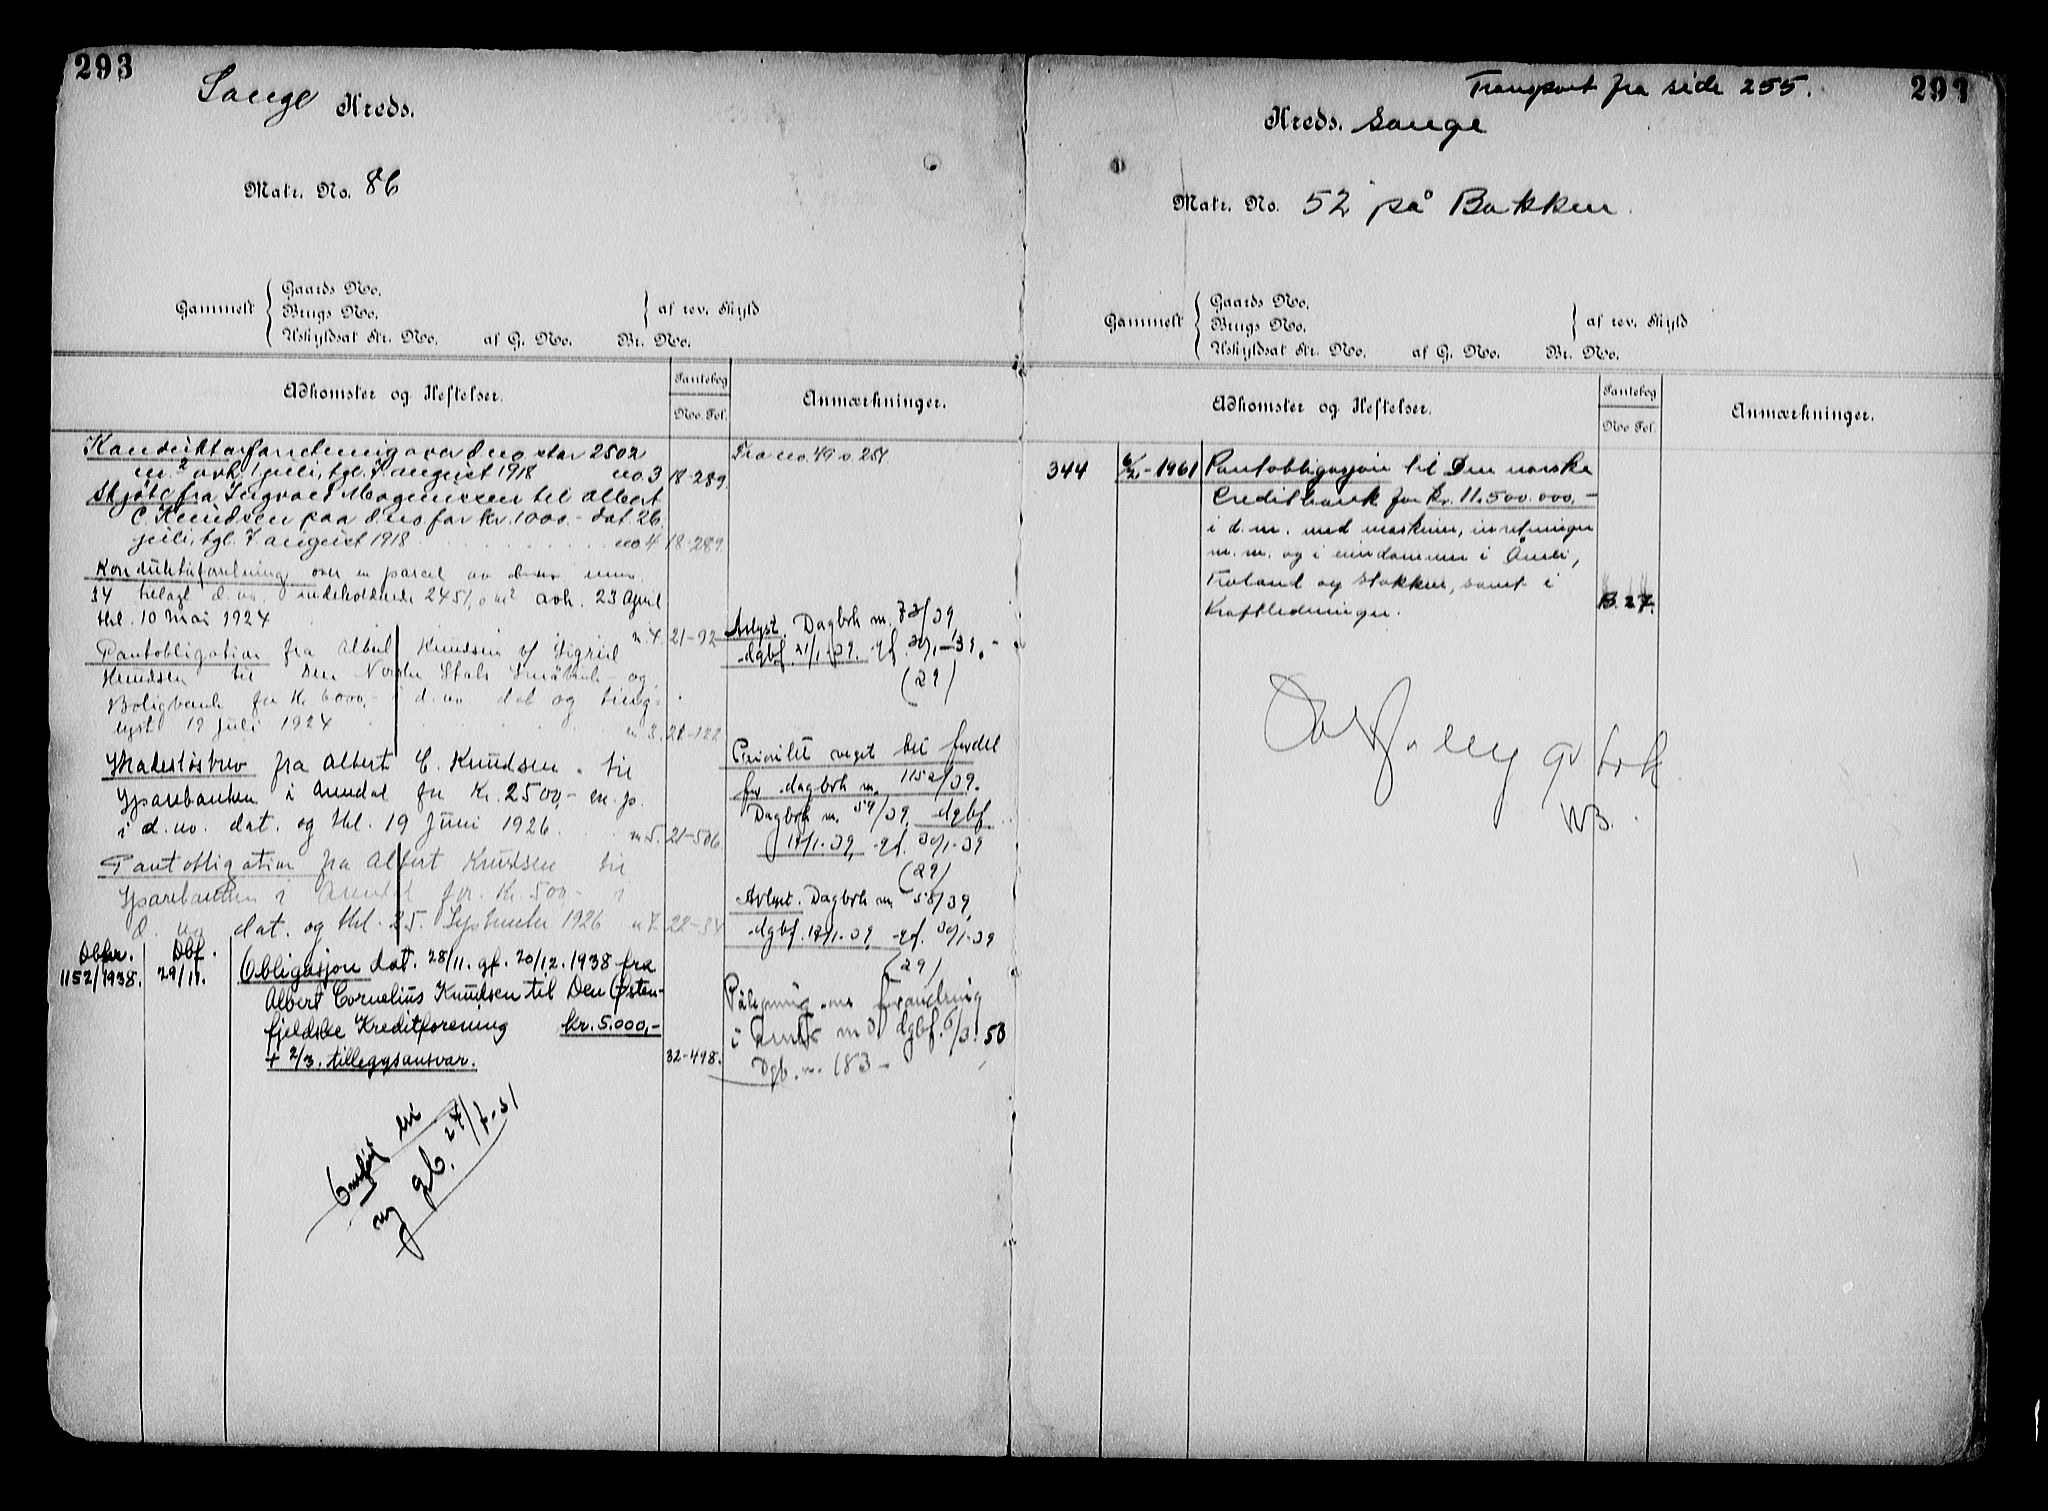 293
Sange Kreds.
Matr. No. 86
Gammelt
Gaards No.
Brugs No.
Uskyldsat Str. No. af G. No. Br. No.
af rev. Skyld
Adkomster og Heftelser.
Pantebog
No. Fol.
Anmærkninger.
Konduktørforretning over d no stor 2502
m² avh. 1 juli, tgl. 7 august 1918 no 3 18-289.
Skjöte fra Ingvald Mogensen til Albert
C. Knudsen paa d. no for kr. 1000.- dat. 26
juli, tgl. 7 august 1918 no 4 18-289.
Konduktörforretning over en parcel av
34 tillagt d. no. indeholdende 2451,0 m² avh. 23 April
thl. 10 Mai 1924 n 4. 21-92
Pantobligation fra Albert Knudsen og Sigrid
Knudsen til Den Norske Stats Småbruk- og
Boligbank for Kr 6000,- i d. no dat og ting-
lyst 19 Juli 1924 n 3. 21-122
Skadeslösbrev fra Albert C. Knudsen til
Sparebanken i Arendal for Kr. 2500,- m. p.
i d. no. dat. og thl. 19 Juni 1926. n 5. 21-506
Pantobligation fra Albert Knudsen til
Sparebanken i Arendal for Kr. 500,- i
d. no dat. og thl. 25. September 1926 n 7. 22-34
Dbf.
1152/1938. 29/11.
Obligasjon dat. 28/11. gf. 20/12. 1938 fra
Albert Cornelius Knudsen til Den Østen-
fjeldske Kreditforening kr. 5.000,-
+ 2/3. tilleggsansvar. 32-498.
Fra no. 49 s 251
Avlyst. Dagbok n. 73/39,
dgbf. 21/1.39. gf. 30/1-39.-
(29)
Prioritet veget til fordel
for dagbok n. 1152/39.
Dagbok n. 59/39, dgbf.
17/1.39, gf. 30/1-39
(29)
Avlyst. Dagbok n 58/39,
dgbf. 17/1.39, gf. 30/1-39
(29)
Påtegning om forandring
i dgbf. 6/3 53
Dgb. n. 183-
Overført til
ny gb. 24/7-51
293
Transport fra side 255.
Kreds. Sange
Matr. No. 52 på Bakken.
Gammelt
Gaards No.
Brugs No.
Uskyldsat Str. No. af G. No. Br. No.
af rev. Skyld
Adkomster og Heftelser.
Pantebog
No. Fol.
Anmærkninger.
344 6/2-1961 Pantobligasjon til Den norske
Creditbank for kr. 11.500.000,-
i d. m. med maskiner, innretninger
m. m. og i eiendommene i Åmli,
Froland og Stokken, samt i
Kraftledninger. B. 27.